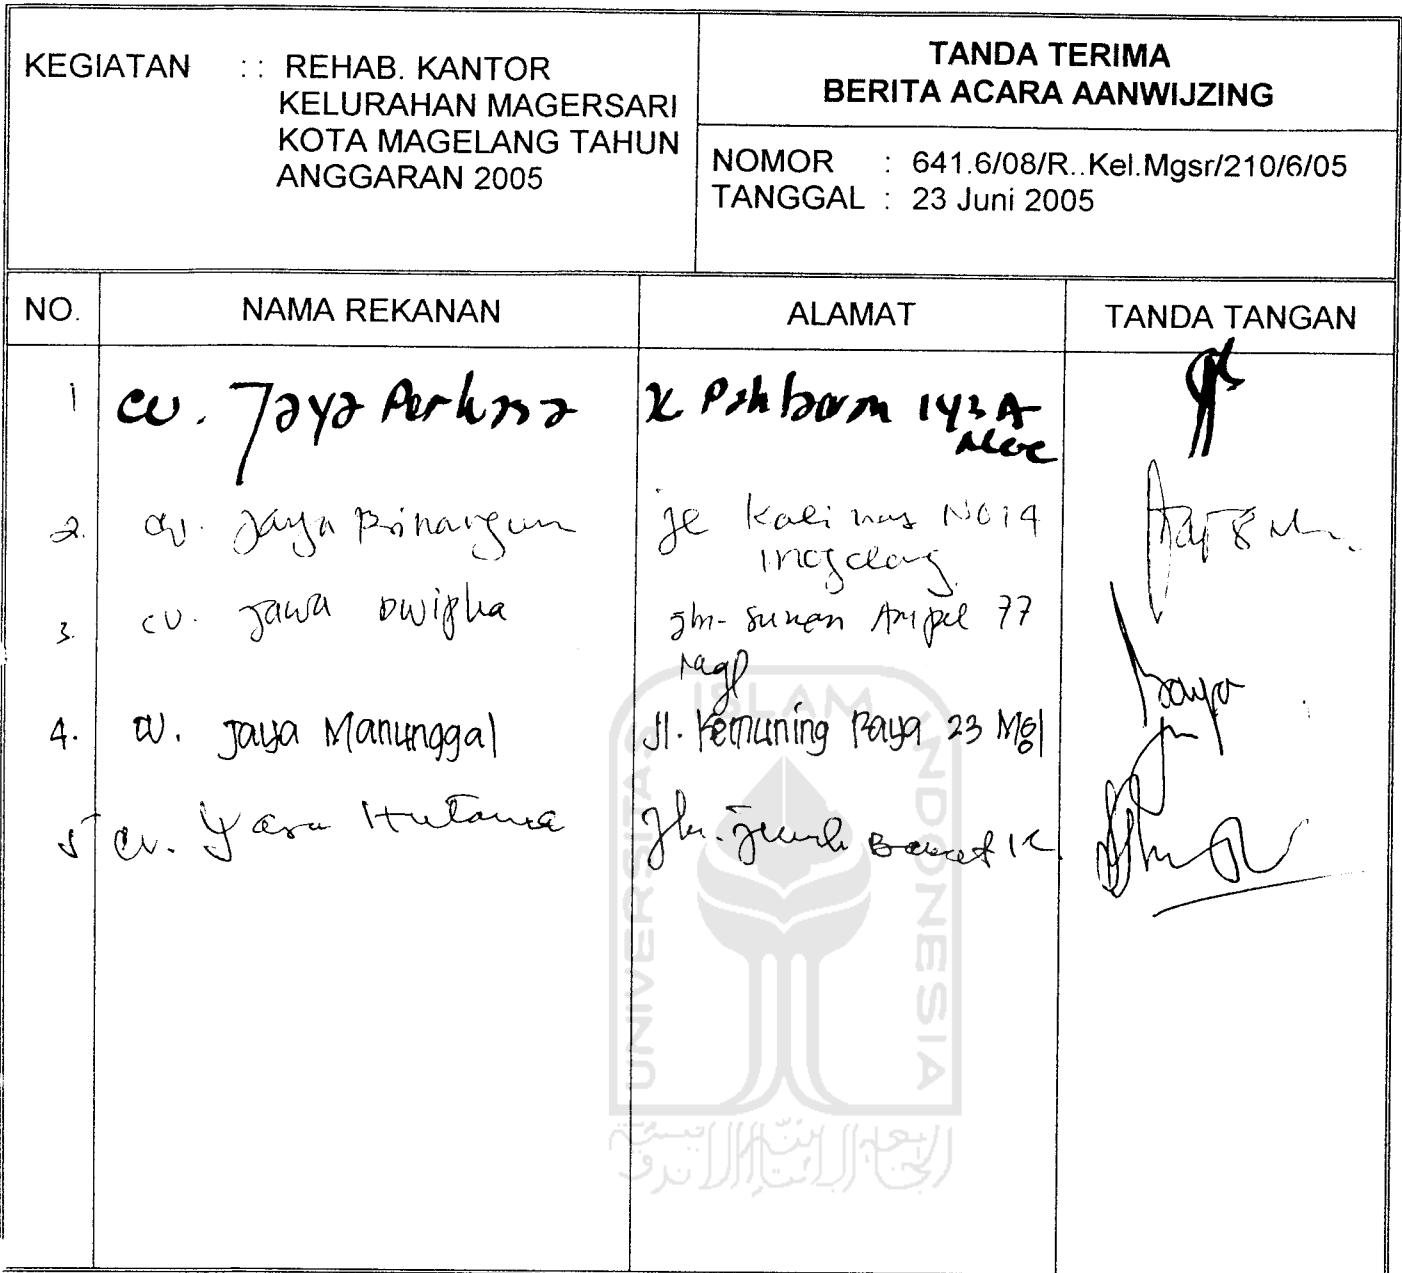 KEGIATAN : : REHAB. KANTOR
KELURAHAN MAGERSARI
KOTA MAGELANG TAHUN
ANGGARAN 2005
TANDA TERIMA
BERITA ACARA AANWIJZING
NOMOR : 641.6/08/R..Kel.Mgsr/210/6/05
TANGGAL : 23 Juni 2005
NO. NAMA REKANAN ALAMAT TANDA TANGAN
1 CV. Jaya Perkasa 143 A
2. CV. Jaya Binangun Jl Kalimas No 14
Magelang
3. CV. Jawa Dwipha Jln. Sunan Ampel 77
Magl
4. CV. Jaya Manunggal Jl. Kemuning Raya 23 Mgl
5 CV. Hutama Jln.
UNIVERSITAS ISLAM INDONESIA